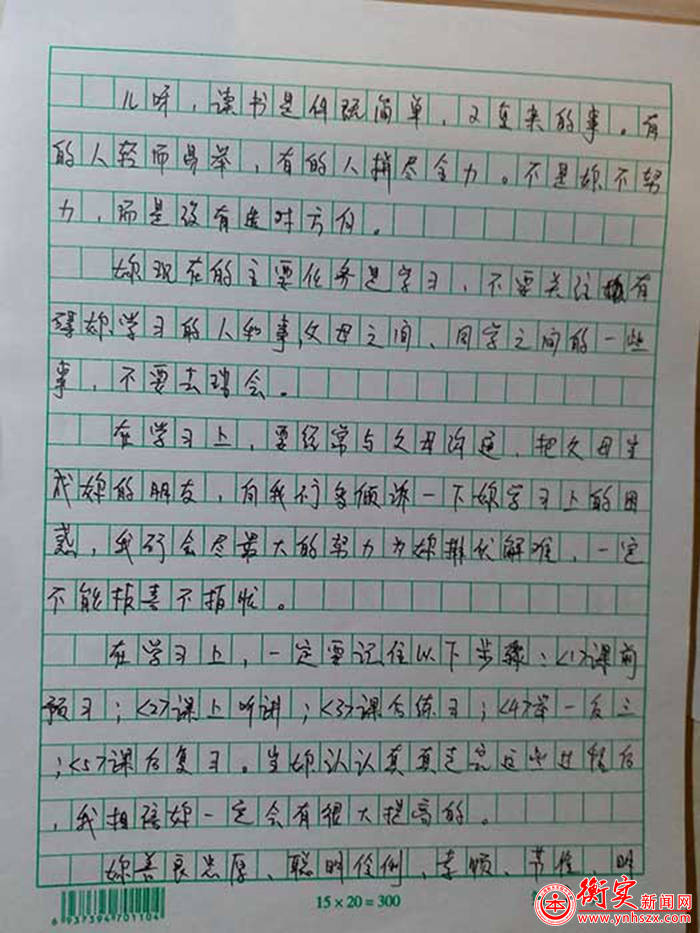 儿呀，读书是件既简单，又复杂的事。有
的人轻而易举，有的人拼尽全力。不是娘不努
力，而是没有选对方向。
妳现在的主要任务是学习，不要关注拥有
碍妳学习的人和事，父母之间、同学之间的一些
事，不要去理会。
在学习上，要经常与父母沟通，把父母当
成妳的朋友，向我们多倾诉一下妳学习上的困
惑，我们会尽最大的努力为妳排忧解难，一定
不能报喜不报忧。
在学习上，一定要记住以下步骤：<1>课前
预习；<2>课上听讲；<3>课后练习；<4>举一反三
；<5>课后复习。当妳认认真真走完这些过程后
，我相信妳一定会有很大提高的。
妳善良忠厚、聪明伶俐、孝顺、节俭、明
6 937394 701104
15×20=300
衡实新闻网
www.ynhszx.com